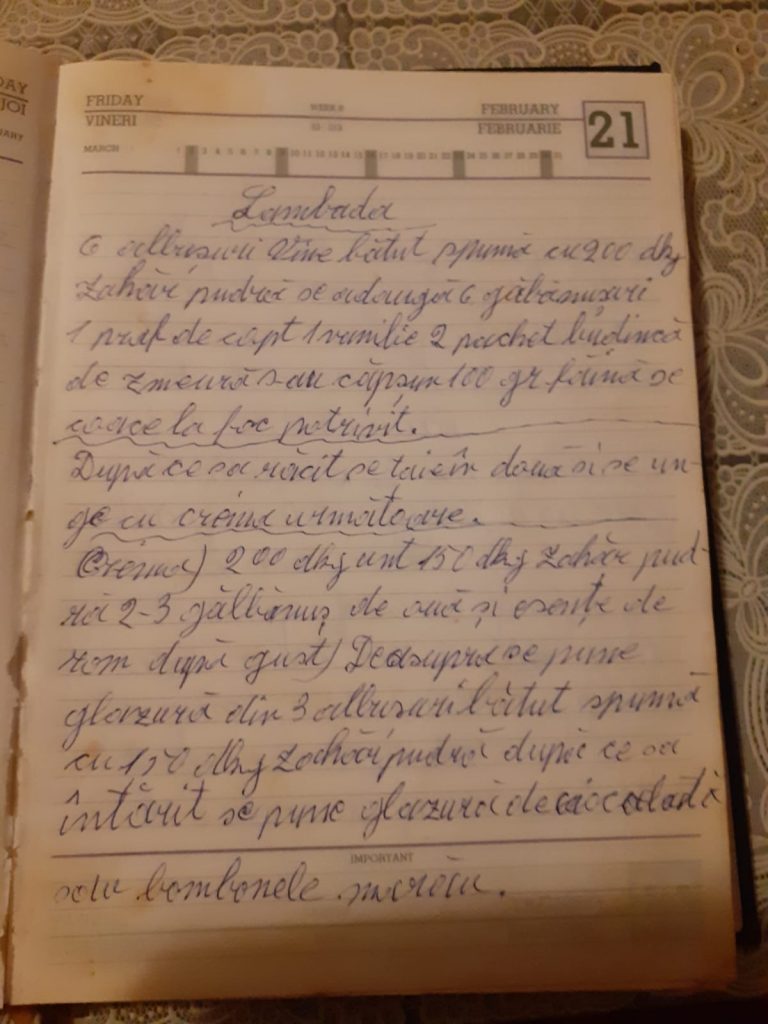 DAY
JOI
FRIDAY
VINERI
FEBRUARY
FEBRUARIE
21
MARCH
Lambada
6 albusuri bine bătut spumă cu 200 dkg
zahăr pudră se adaugă 6 gălbănușuri
1 praf de copt 1 vanilie 2 pachet budincă
de zmeură sau căpșun 100 gr făină se
coace la foc potrivit.
După ce sa răcit se taie în două și se un-
ge cu crema următoare.
Crema) 200 dkg unt 150 dkg zahăr pud-
ră 2-3 gălbănuș de ouă și esențe de
rom după gust) Deasupra se pune
glazură din 3 albusuri bătut spumă
cu 150 dkg zahăr pudră după ce sa
întărit se pune glazură de ciocolată
IMPORTANT
sau bombonele